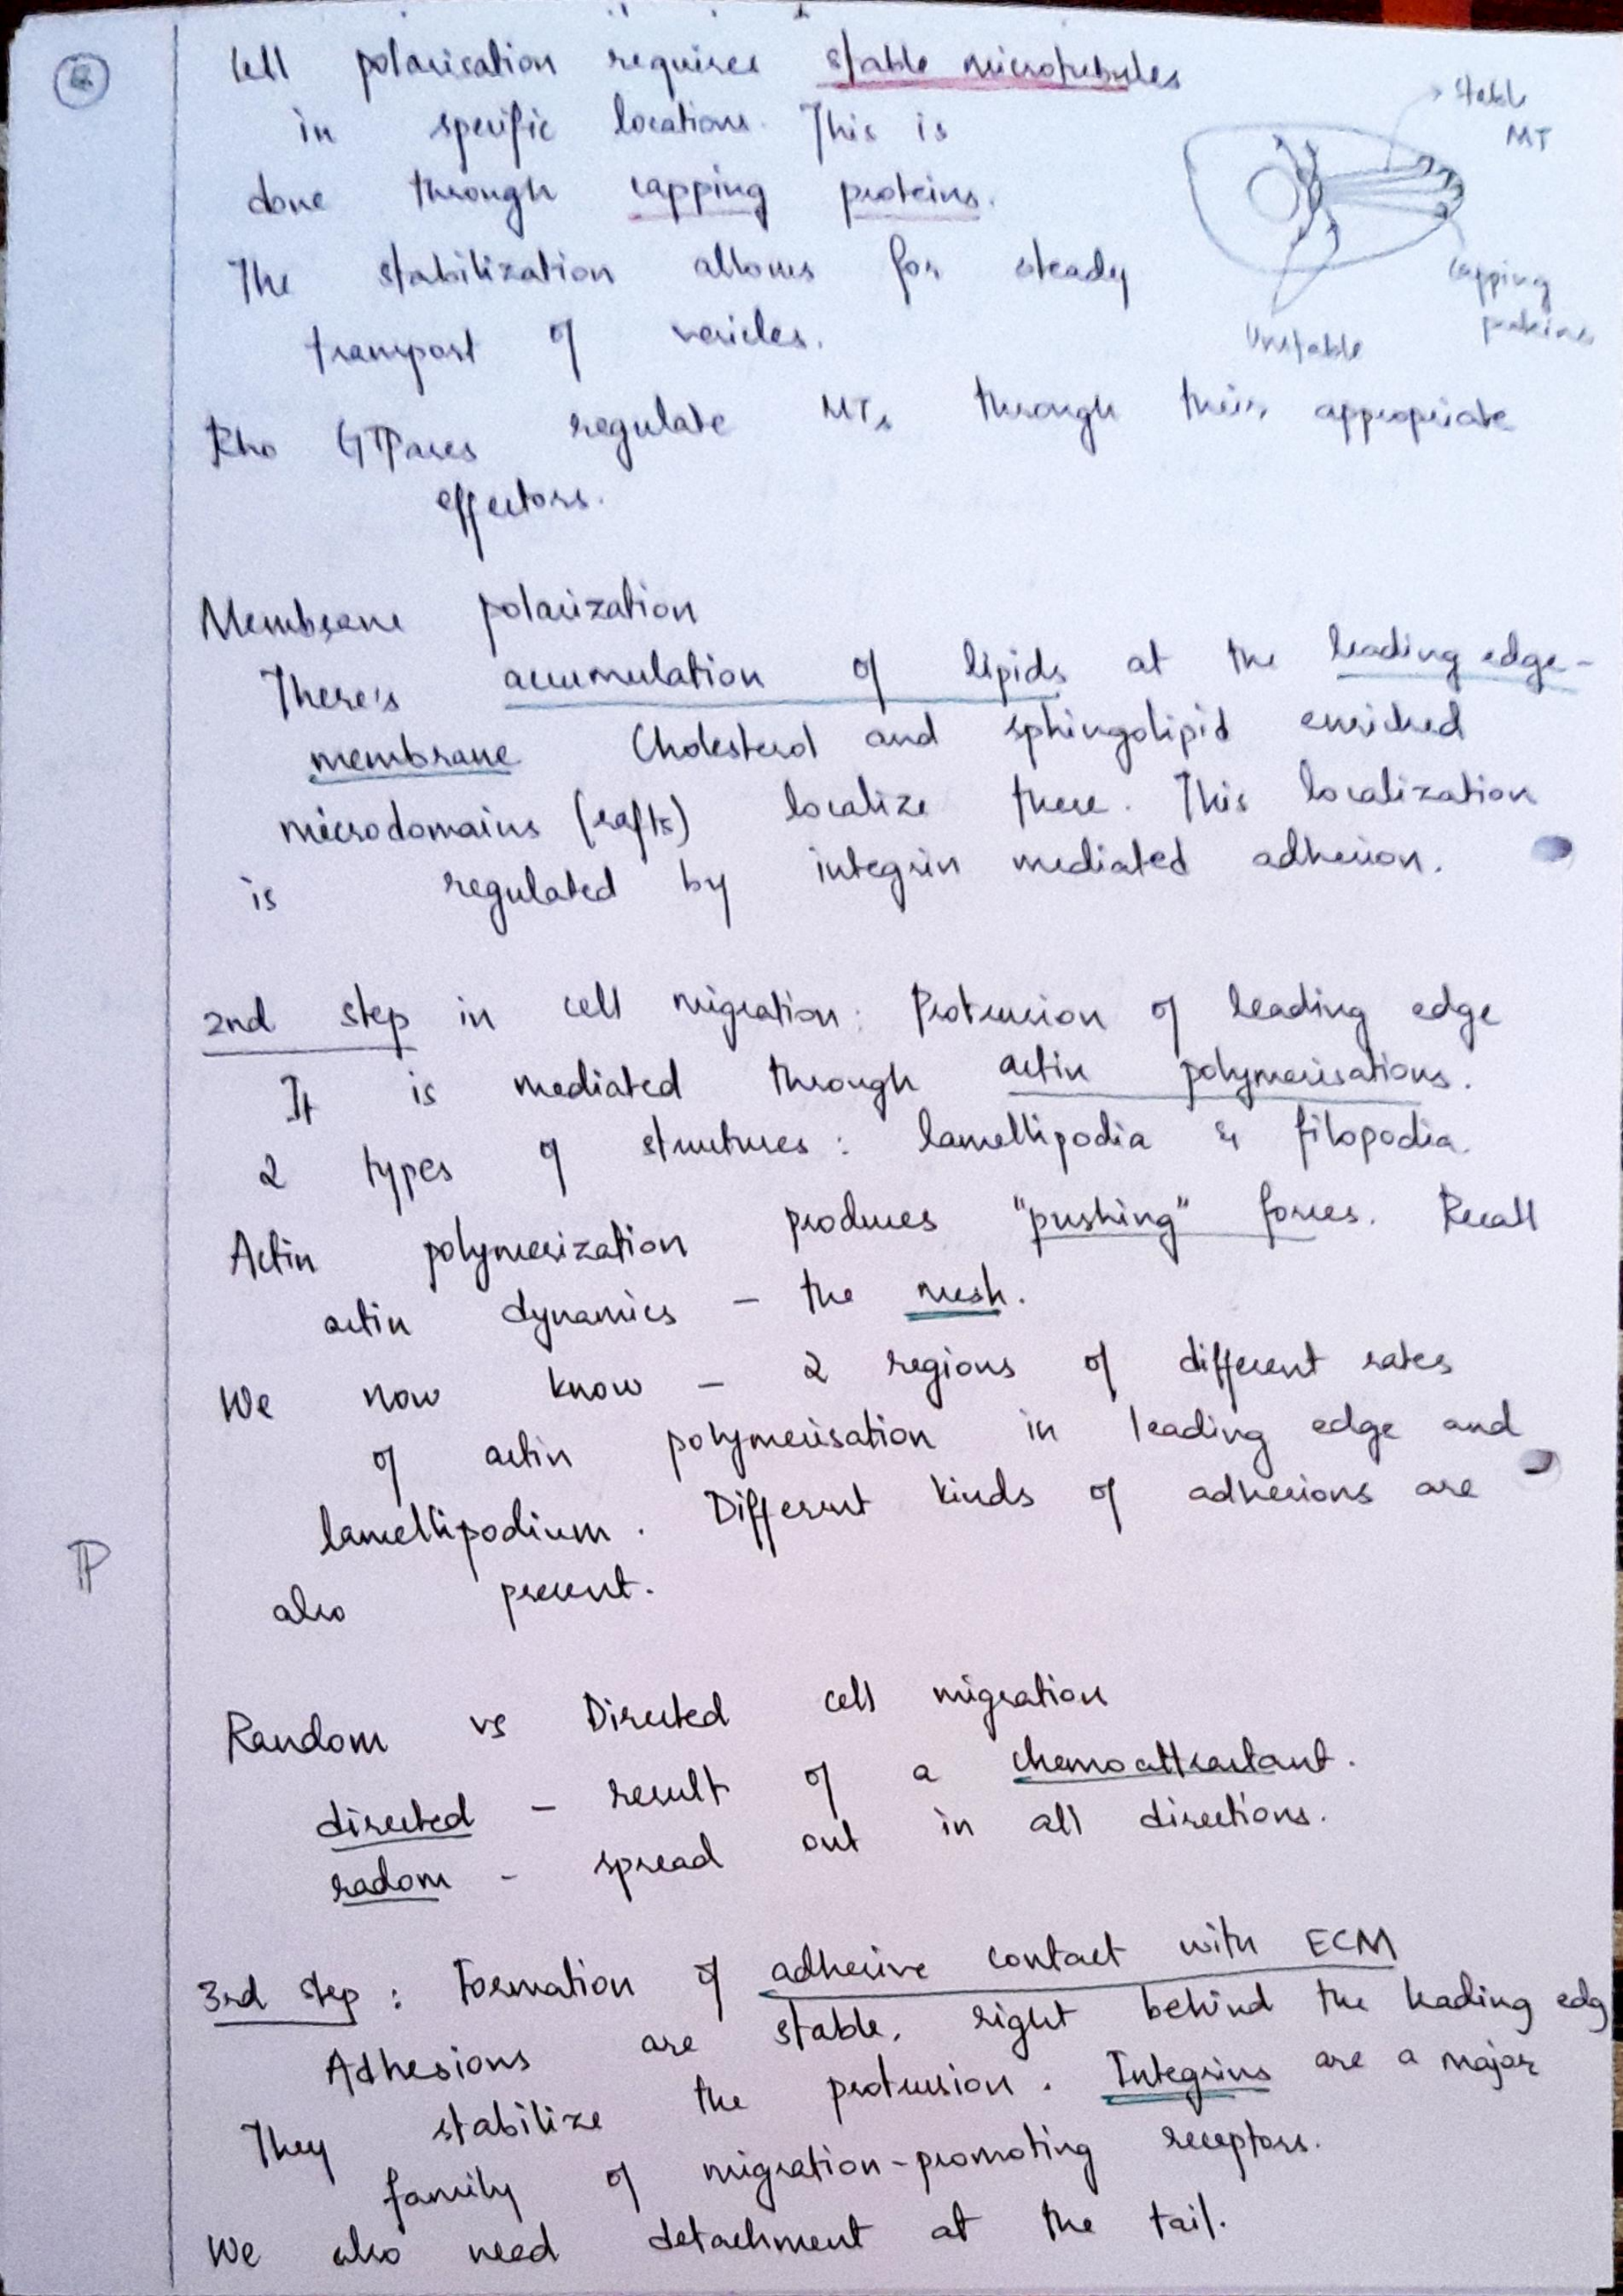 Cell polarisation requires stable microtubules
in specific locations. This is
done through capping proteins.
The stabilization allows for steady
transport of vesicles.
Stable
MT
Capping
proteins
Unstable
Rho GTPases regulate MTs through their appropriate
effectors.
Membrane polarization
There's accumulation of lipids at the leading edge-
membrane Cholesterol and sphingolipid enriched
microdomains (rafts) localize there. This localization
is regulated by integrin mediated adhesion.
2nd step in cell migration: Protrusion of leading edge
It is mediated through actin polymerisations.
2 types of structures: lamellipodia & filopodia.
Actin polymerization produces "pushing" forces. Recall
actin dynamics - the mesh.
We now know - 2 regions of different rates
of actin polymerisation in leading edge and
lamellipodium. Different kinds of adhesions are
also present.
P
Random vs Directed cell migration
directed - result of a chemoattractant.
radom - spread out in all directions.
3rd step: Formation of adhesive contact with ECM
Adhesions are stable, right behind the leading edg
They stabilize the protrusion. Integrins are a major
family of migration-promoting receptors.
We also need detachment at the tail.